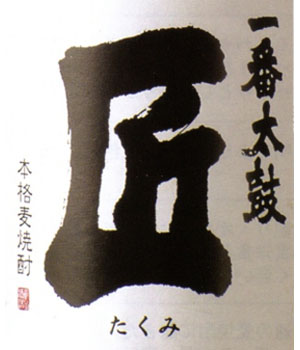 一番太鼓
匠
たくみ
本格麦焼酎